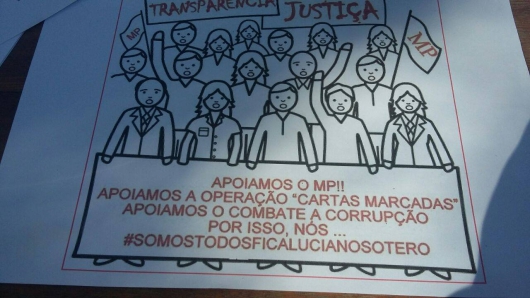 TRANSPARÊNCIA
JUSTIÇA
MP
MP
APOIAMOS O MP!!
APOIAMOS A OPERAÇÃO "CARTAS MARCADAS"
APOIAMOS O COMBATE A CORRUPÇÃO
POR ISSO, NÓS ...
#SOMOSTODOSFICALUCIANOSOTERO